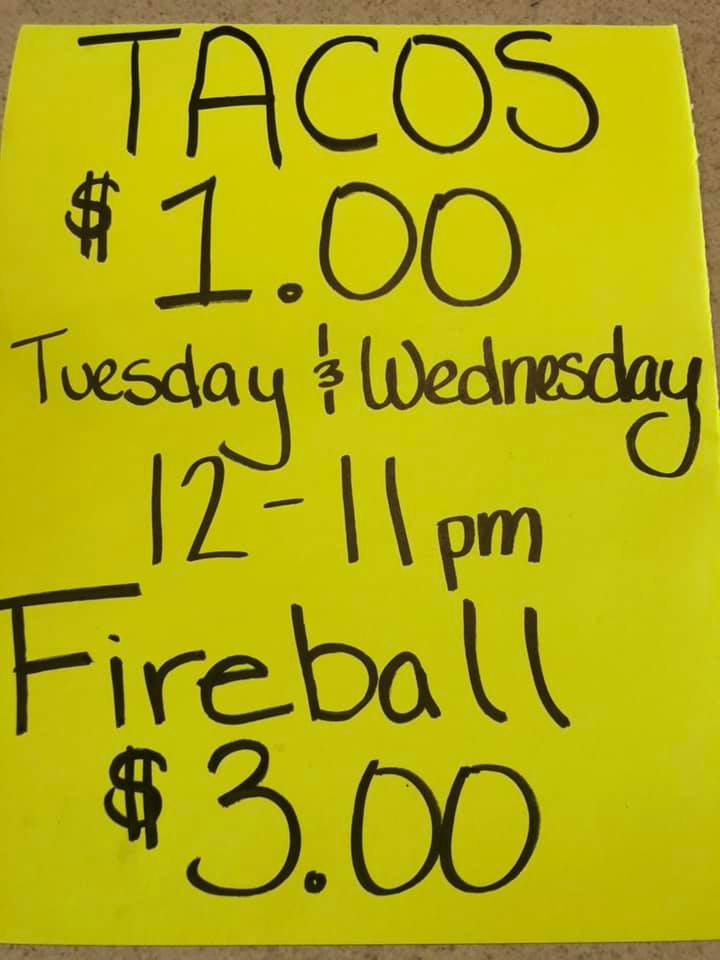 TACOS
$1.00
Tuesday & Wednesday
12-11pm
Fireball
$3.00